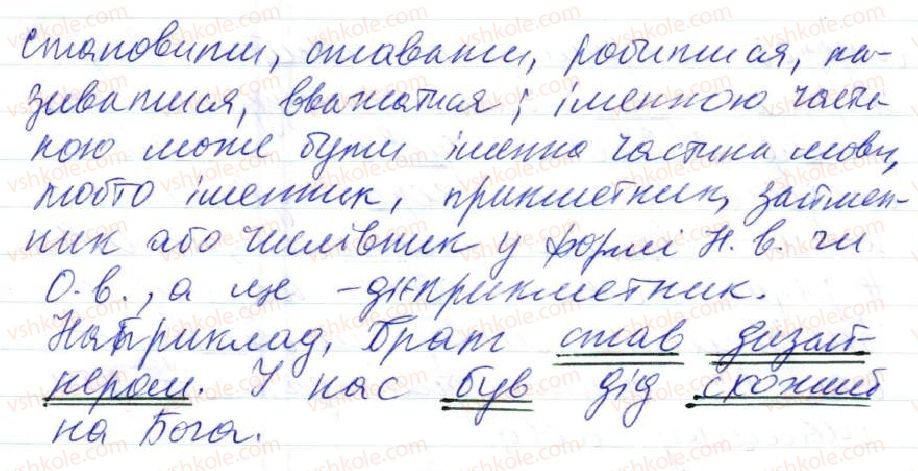 становити, ставати, робитися, на-
зиватися, вважатися; іменною части-
ною може бути іменна частина мови,
тобто іменник, прикметник, займен-
ник або числівник у формі Н. в. чи
О. в., а ще - дієприкметник.
Наприклад, Брат став дизай-
нером. У нас був дід схожий
на Бога.